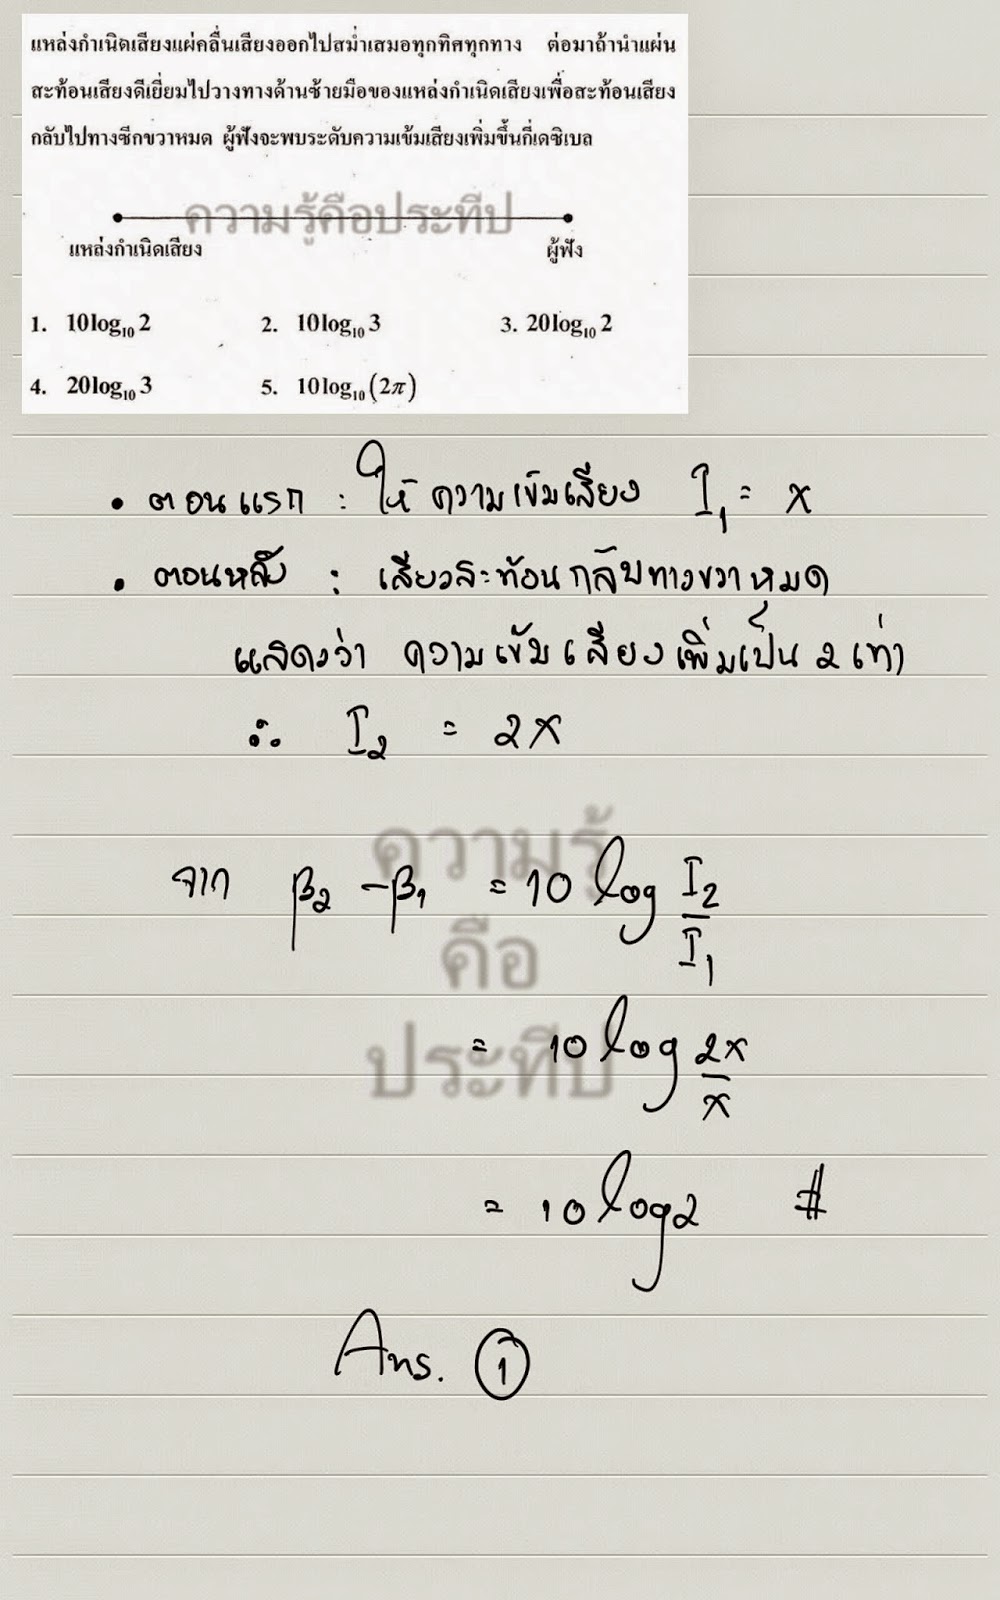 แหล่งกำเนิดเสียงแผ่คลื่นเสียงออกไปสม่ำเสมอทุกทิศทุกทาง ต่อมาถ้านำแผ่น
สะท้อนเสียงดีเยี่ยมไปวางทางด้านซ้ายมือของแหล่งกำเนิดเสียงเพื่อสะท้อนเสียง
กลับไปทางซีกขวาหมด ผู้ฟังจะพบระดับความเข้มเสียงเพิ่มขึ้นกี่เดซิเบล
ความรู้คือประทีป
แหล่งกำเนิดเสียง ผู้ฟัง
1. 10log₁₀2 2. 10log₁₀3 3. 20log₁₀2
4. 20log₁₀3 5. 10log₁₀(2π)
• ตอนแรก : ให้ ความเข้มเสียง I₁ = x
• ตอนหลัง : เสียงสะท้อนกลับทางขวาหมด
แสดงว่า ความเข้มเสียงเพิ่มเป็น 2 เท่า
∴ I₂ = 2x
ความรู้
คือ
ประทีป
จาก β₂ - β₁ = 10 log I₂/I₁
= 10 log 2x/x
= 10 log 2 #
Ans. ①